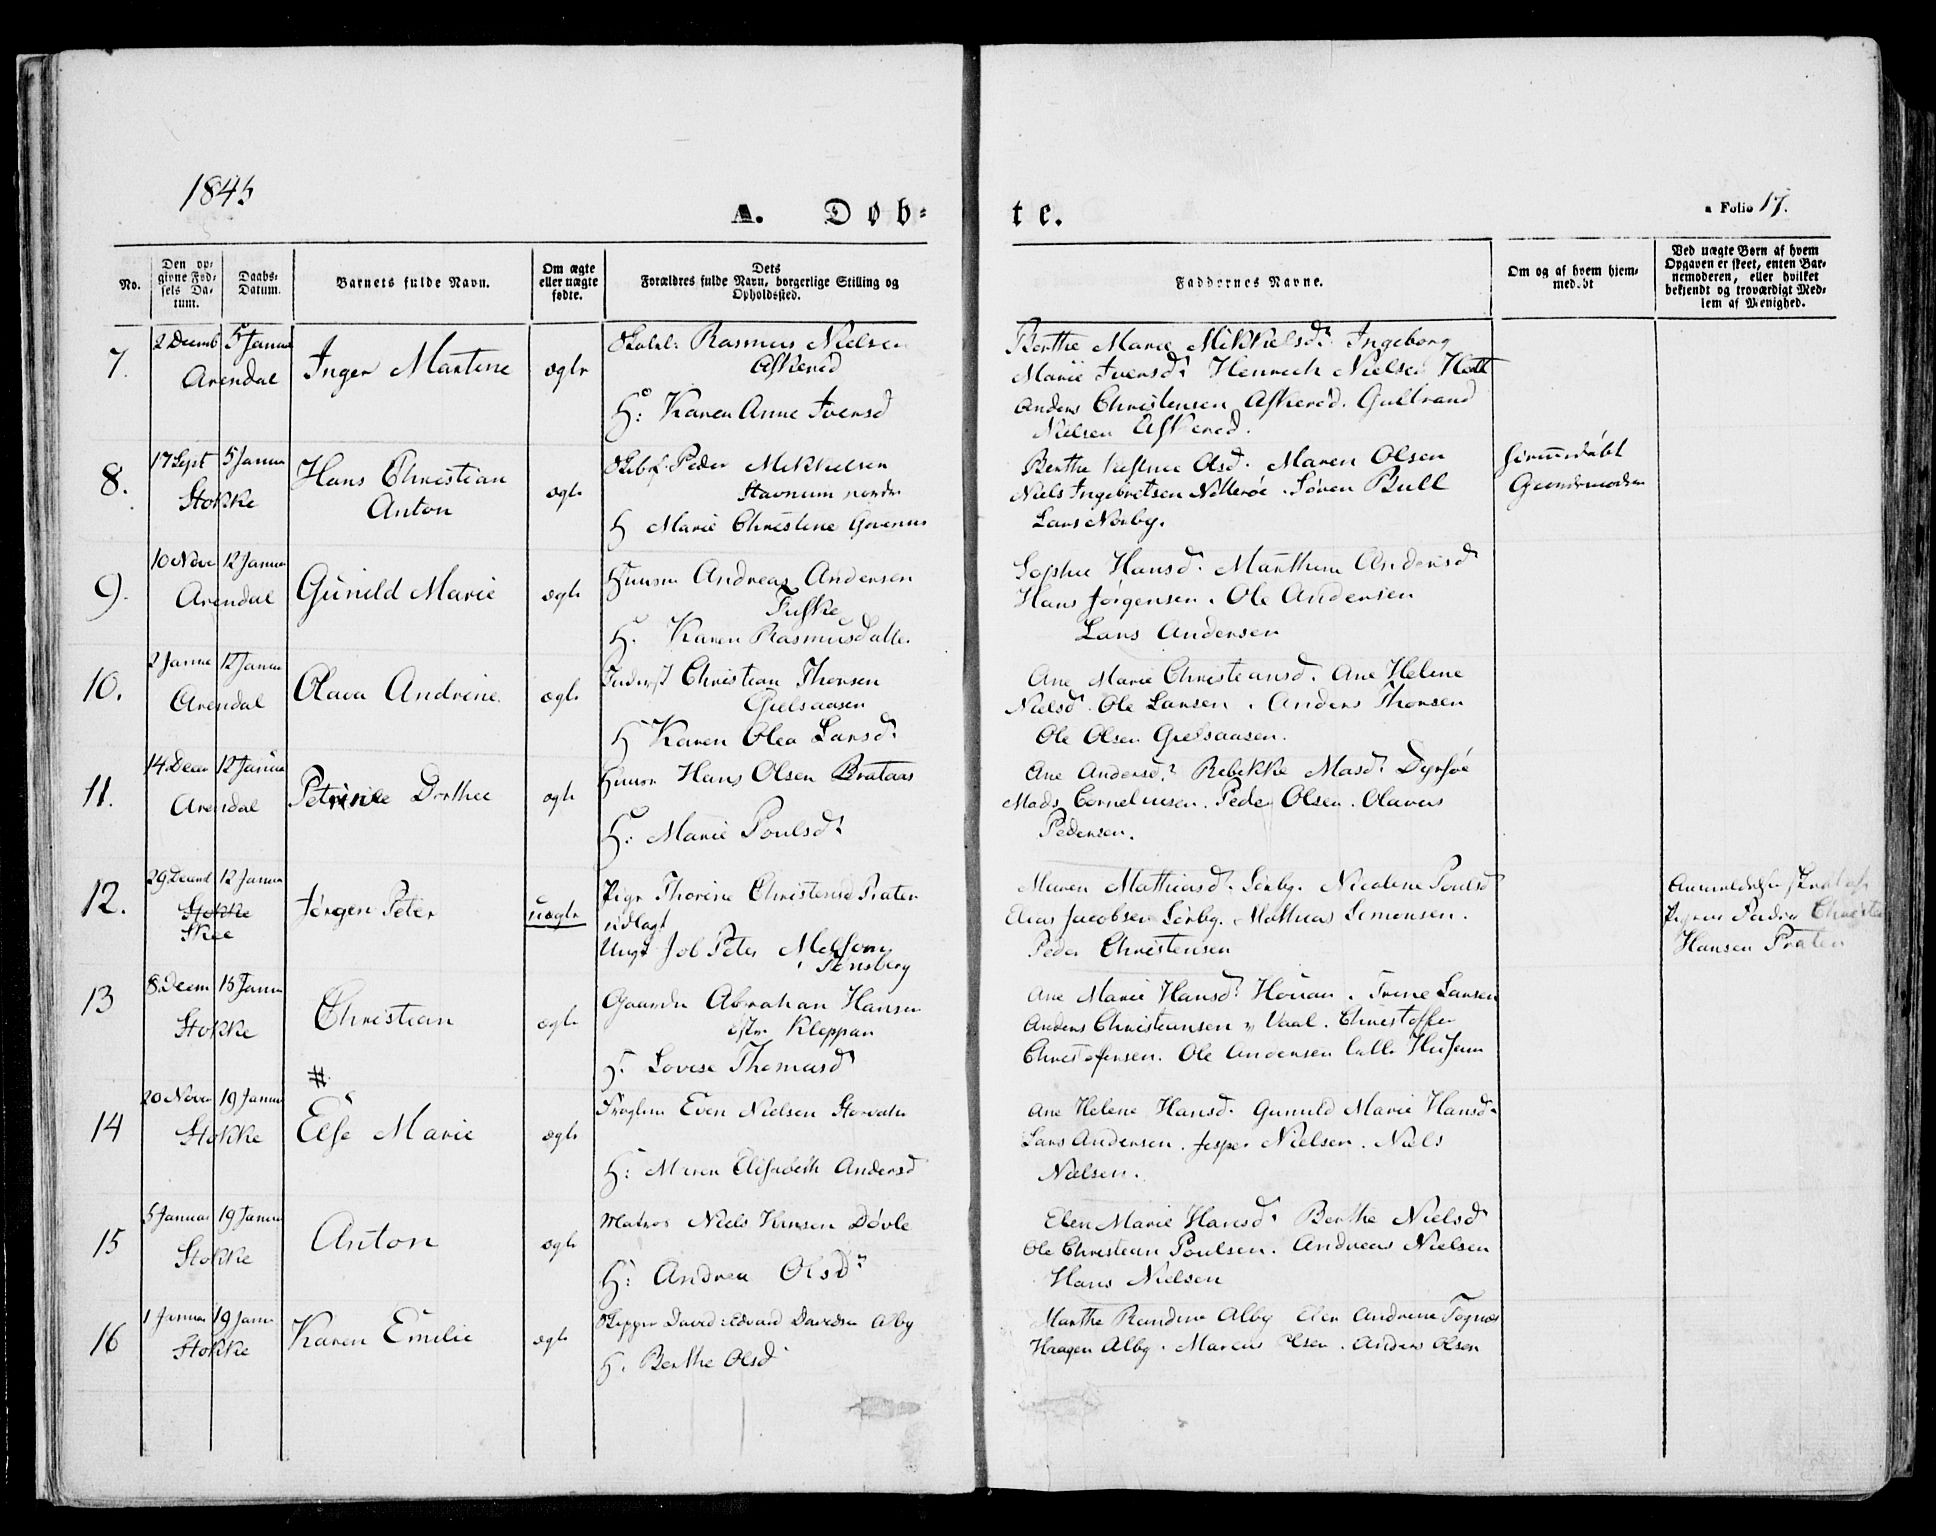 1845
A. Døb-
te.
Folio 17.
No.
Den op-
givne Fød-
sels Da-
tum.
Daabs-
Datum.
Barnets fulde Navn.
Om ægte
eller uægte
fødte.
Dets
Forældres fulde Navn, borgerlige Stilling og
Opholdssted.
Faddernes Navne.
Om og af hvem hjem-
medøbt
Ved uægte Børn af hvem
Opgaven er skeet, enten Bar-
nemoderen, eller hvilket
bekjendt og troværdigt Med-
lem af Menighed.
7.
2 Decmb
5 Janua
Arendal
Inger Martine
ægte
Rasmus Nielsen
Askerød
H: Karen Anne Iversd
Berthe Marie Mikkelsdr. Ingeborg
Marie Iversdr Henrich Nielsen
Anders Christensen Askerød. Gulbrand
Nielsen Askerød.
8.
17 Sept
5 Janua
Stokke
Hans Christian
Anton
ægte
Peder Mikkelsen
Stavnum nordre
H Marie Christine
Berthe Olsd. Maren Olsen
Niels Ingebretsen Nøtterøe. Søren Bull
Lars Norby.
9.
10 Nove
12 Janua
Arendal
Gunild Marie
ægte
Huusm Andreas Andersen
Fuske
H. Karen Rasmusdatter
Sophie Hansd. Marthine Andersd
Hans Jørgensen. Ole Andersen
Lars Andersen
10.
2 Janua
12 Janua
Arendal
Olava Andrine
ægte
Christian Thorsen
Gielsaasen
H Karen Olea Larsdr
Ane Marie Christiansd. Ane Helene
Nielsd. Ole Larsen. Anders Thorsen
Ole Olsen Gielsaasen.
11.
14 Decer
12 Janua
Arendal
Dorthee
ægte
Huusm Hans Olsen Brataas
H: Marie Poulsdr
Ane Andersdr Rebekke Masdr Dyrsøe
Mads Cornelinsen. Peder Olsen. Olaves
Pedersen.
12.
29 Decmb
12 Janua
Stokke
Skee
Jørgen Peter
uægte
Pige Thorine Christensd Præter
udlagt
Ungk Job Peter Melsom
i Tønsberg
Maren Mathiasd. Sørby. Nicoline Poulsd
Elias Jacobsen Sørby. Mathias Simonsen.
Peder Christensen
Anmeldelse
Pigens Fader Christen
Hansen Præter
13
8 Decm
15 Janu
Stokke
Christian
ægte
Gaardm Abraham Hansen
østre Kleppan
H. Lovise Thomasd
Ane Marie Hansdr. Trine Larsen
Anders Christiansen Vaal. Christoffer
Christofersen. Ole Andersen lille
14
20 Nove
19 Janua
Stokke
#
Else Marie
ægte
Even Nielsen
H: Maren Elisabeth Andersd
Ane Helene Hansd. Gunild Marie Hansd.
Lars Andersen. Jesper Nielsen. Niels
Nielsen.
15
5 Januar
19 Janua
Stokke
Anton
ægte
Matros Niels Hansen Døvle
H: Andrea Olsdr
Elen Marie Hansdr Berthe Nielsd
Ole Christian Poulsen. Andreas Nielsen
Hans Nielsen
16
1 Januar
19 Janu
Stokke
Karen Emilie
ægte
Skipper David Edvard Davidsen Alby
H. Berthe Olsd
Marthe Randine Alby Elen Andrine
Haagen Alby. Marcus Olsen. Anders Olsen